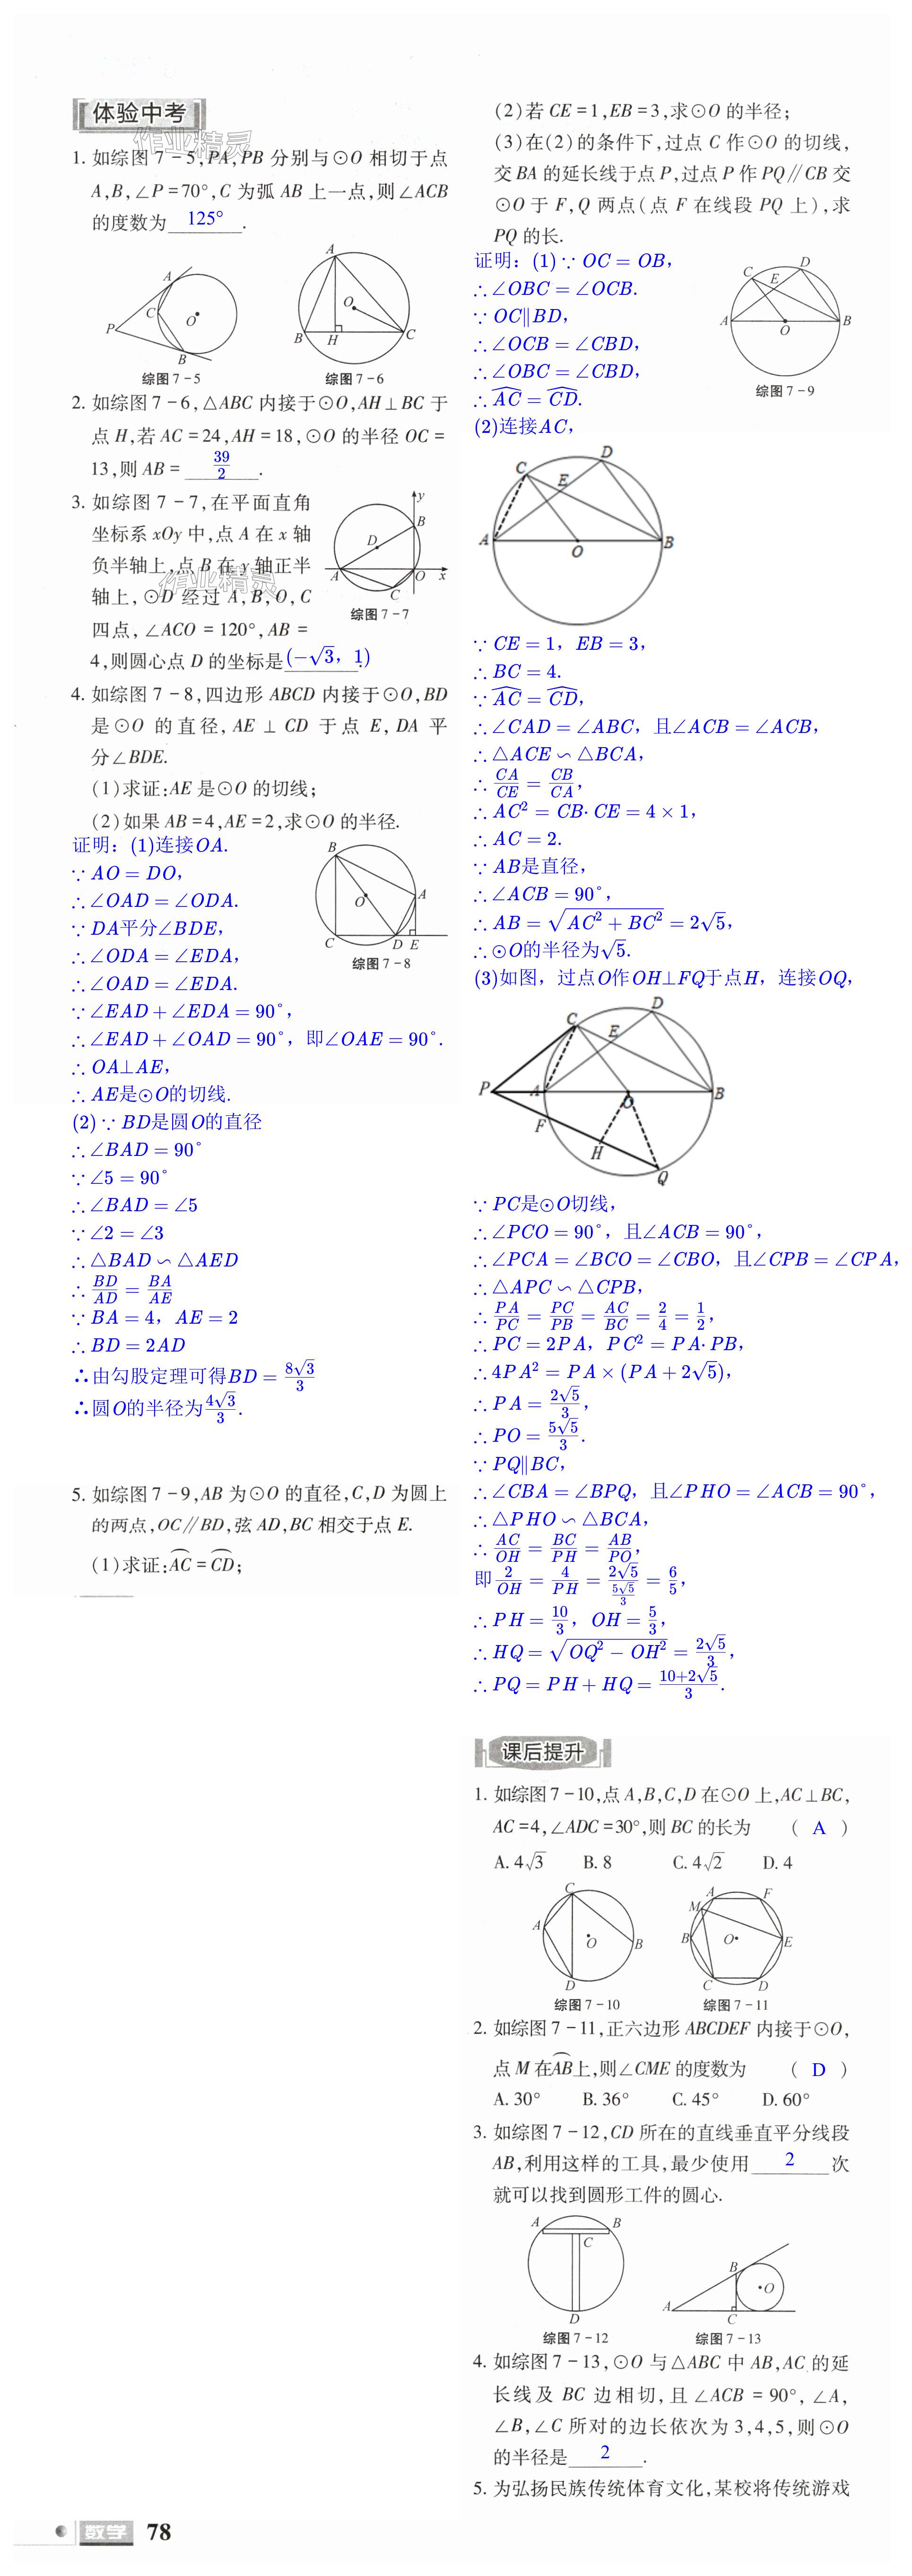 体验中考
作业精灵
1. 如综图 7-5,PA,PB 分别与⊙O 相切于点
A,B,∠P=70°,C 为弧 AB 上一点,则∠ACB
的度数为 125° .
A
C
O
P
B
综图 7-5
A
O
B
H
C
综图 7-6
2. 如综图 7-6,△ABC 内接于⊙O,AH⊥BC 于
点 H,若 AC=24,AH=18,⊙O 的半径 OC=
13,则 AB= 39/2 .
3. 如综图 7-7,在平面直角
坐标系 xOy 中,点 A 在 x 轴
负半轴上,点 B 在 y 轴正半
轴上,⊙D 经过 A,B,O,C
四点,∠ACO=120°,AB=
4,则圆心点 D 的坐标是(-√3, 1).
作业精灵
y
B
D
A
O
x
C
综图 7-7
4. 如综图 7-8,四边形 ABCD 内接于⊙O,BD
是⊙O 的直径,AE⊥CD 于点 E,DA 平
分∠BDE.
(1)求证:AE 是⊙O 的切线;
(2)如果 AB=4,AE=2,求⊙O 的半径.
证明：(1)连接OA.
∵AO=DO，
∴∠OAD=∠ODA.
∵DA平分∠BDE，
∴∠ODA=∠EDA，
∴∠OAD=∠EDA.
∵∠EAD+∠EDA=90°，
∴∠EAD+∠OAD=90°，即∠OAE=90°.
∴OA⊥AE，
∴AE是⊙O的切线.
(2)∵BD是圆O的直径
∴∠BAD=90°
∵∠5=90°
∴∠BAD=∠5
∵∠2=∠3
∴△BAD∽△AED
∴BD/AD=BA/AE
∵BA=4，AE=2
∴BD=2AD
∴由勾股定理可得BD=8√3/3
∴圆O的半径为4√3/3.
B
O
A
C
D
E
综图 7-8
5. 如综图 7-9,AB 为⊙O 的直径,C,D 为圆上
的两点,OC∥BD,弦 AD,BC 相交于点 E.
(1)求证:AC⌒=CD⌒;
数学 78
(2)若 CE=1,EB=3,求⊙O 的半径;
(3)在(2)的条件下,过点 C 作⊙O 的切线,
交 BA 的延长线于点 P,过点 P 作 PQ∥CB 交
⊙O 于 F,Q 两点(点 F 在线段 PQ 上),求
PQ 的长.
证明：(1)∵OC=OB，
∴∠OBC=∠OCB.
∵OC∥BD，
∴∠OCB=∠CBD，
∴∠OBC=∠CBD，
∴AC⌒=CD⌒.
(2)连接AC，
C
D
E
A
O
B
综图 7-9
C
D
E
A
O
B
∵CE=1，EB=3，
∴BC=4.
∵AC⌒=CD⌒，
∴∠CAD=∠ABC，且∠ACB=∠ACB，
∴△ACE∽△BCA，
∴CA/CE=CB/CA，
∴AC²=CB·CE=4×1，
∴AC=2.
∵AB是直径，
∴∠ACB=90°，
∴AB=√(AC²+BC²)=2√5，
∴⊙O的半径为√5.
(3)如图，过点O作OH⊥FQ于点H，连接OQ，
C
D
E
P
A
O
B
F
H
Q
∵PC是⊙O切线，
∴∠PCO=90°，且∠ACB=90°，
∴∠PCA=∠BCO=∠CBO，且∠CPB=∠CPA，
∴△APC∽△CPB，
∴PA/PC=PC/PB=AC/BC=2/4=1/2，
∴PC=2PA，PC²=PA·PB，
∴4PA²=PA×(PA+2√5)，
∴PA=2√5/3，
∴PO=5√5/3.
∵PQ∥BC，
∴∠CBA=∠BPQ，且∠PHO=∠ACB=90°，
∴△PHO∽△BCA，
∴AC/OH=BC/PH=AB/PO，
即2/OH=4/PH=2√5/(5√5/3)=6/5，
∴PH=10/3，OH=5/3，
∴HQ=√(OQ²-OH²)=2√5/3，
∴PQ=PH+HQ=(10+2√5)/3.
课后提升
1. 如综图 7-10,点 A,B,C,D 在⊙O 上,AC⊥BC,
AC=4,∠ADC=30°,则 BC 的长为 ( A )
A. 4√3 B. 8 C. 4√2 D. 4
C
A
O
B
D
综图 7-10
A
F
M
B
O
E
C
D
综图 7-11
2. 如综图 7-11,正六边形 ABCDEF 内接于⊙O,
点 M 在AB⌒上,则∠CME 的度数为 ( D )
A. 30° B. 36° C. 45° D. 60°
3. 如综图 7-12,CD 所在的直线垂直平分线段
AB,利用这样的工具,最少使用 2 次
就可以找到圆形工件的圆心.
A
B
C
D
综图 7-12
B
O
A
C
综图 7-13
4. 如综图 7-13,⊙O 与△ABC 中 AB,AC 的延
长线及 BC 边相切,且∠ACB=90°,∠A,
∠B,∠C 所对的边长依次为 3,4,5,则⊙O
的半径是 2 .
5. 为弘扬民族传统体育文化,某校将传统游戏